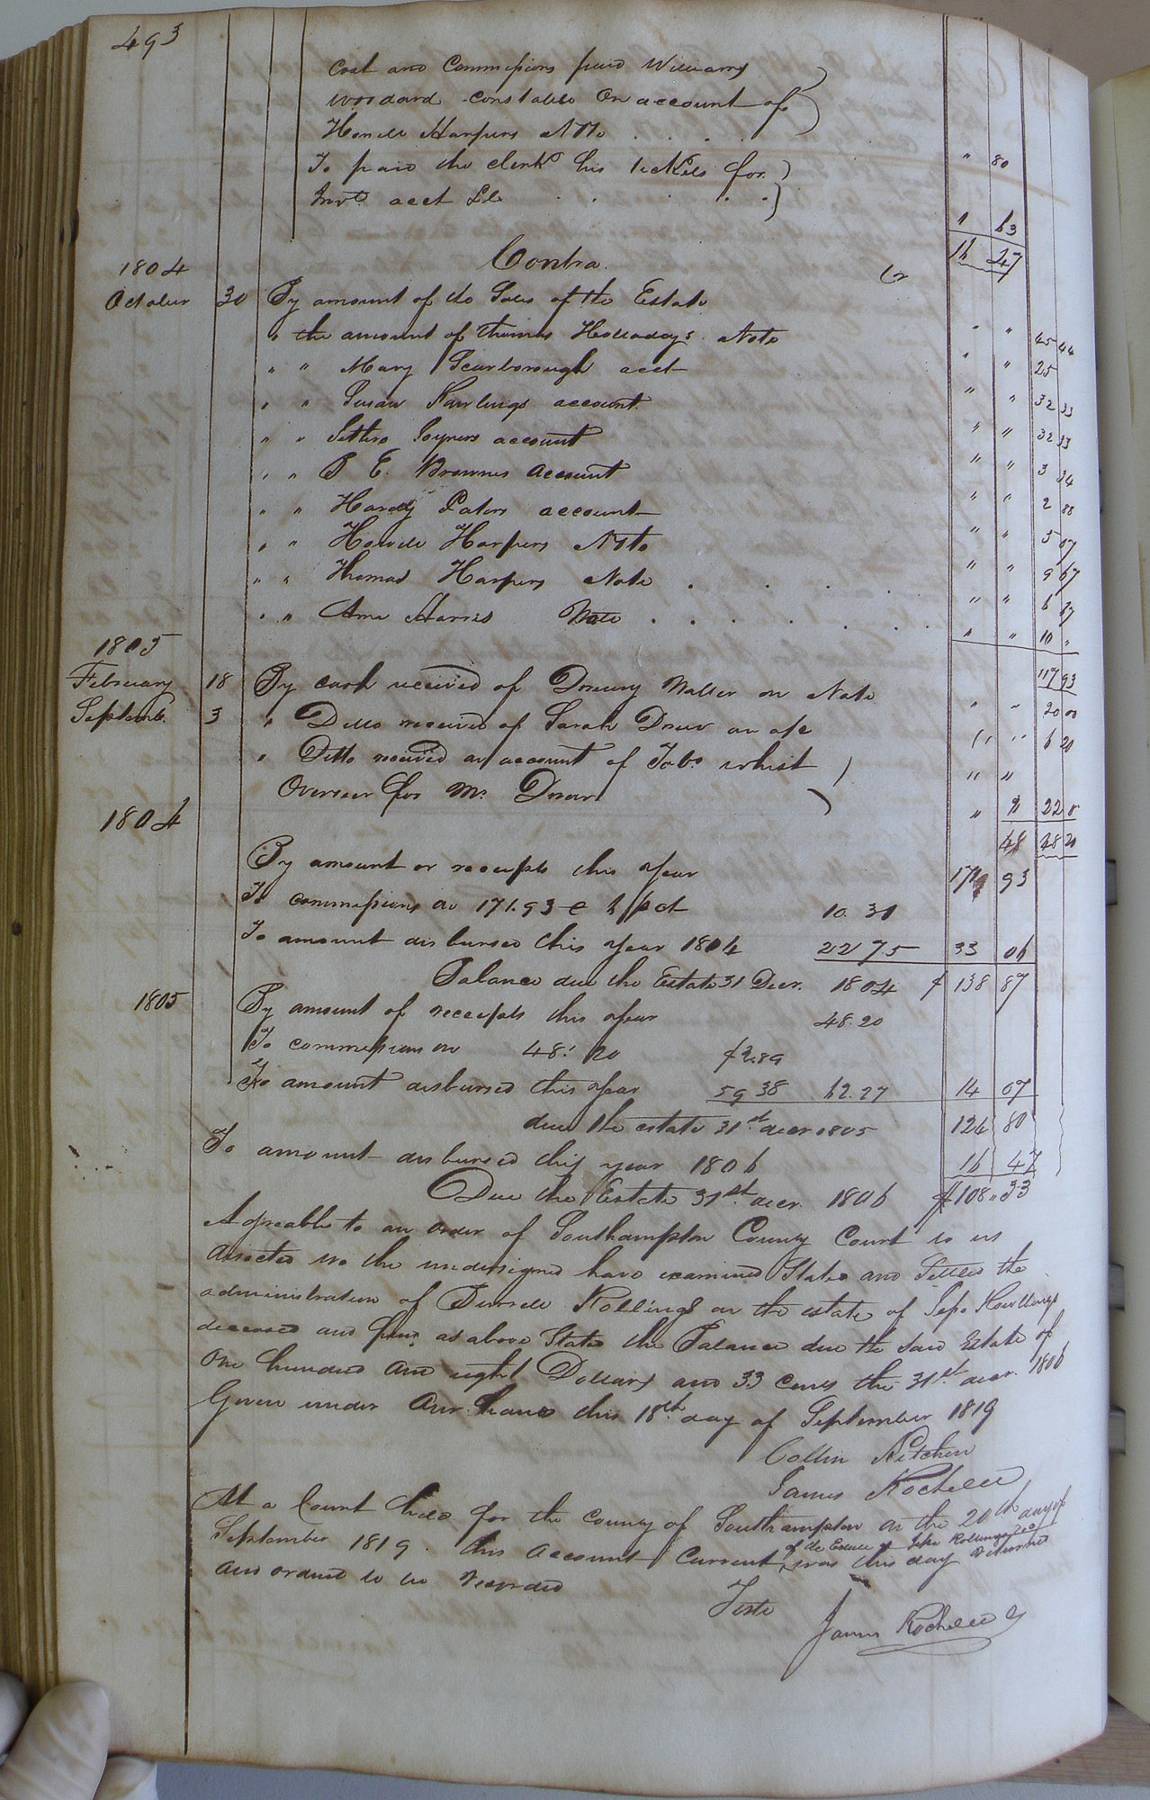 493
Cost and Commissions paid Williams
Woodard constable On account of
Howell Harpers Note
To paid the clerk his tickets for
Invt. acct &c
" 80
" 63
16 47
Contra Cr
1804
October 30 By amount of the Sales of the Estate " " 45 44
" the amount of Thomas Holladays Note " " 25
" " Mary Scarborough acct " " 32 33
" " Susan Rawlings account " " 32 33
" " Joyners account " " 3 34
" " E. Browns Account " " 2 88
" " Hardy Pates account " " 5 07
" " Howell Harpers Note " " 9 67
" " Thomas Harpers Note " " 6 87
" " Harris Note " " 10 "
117 93
1805
February 18 By cash received of Drewry Waller on Note " " 20 00
Septemb. 3 " Ditto received of Sarah Drew on a/c " " 6 20
" Ditto received on account of Jobs whilst
Overseer for Mr. Drew " 22
48 48 20
1804
By amount or receipts this year 171 93
To commissions on 171.93 @ 6 pct 10.31
To amount disbursed this year 1804 22 75 33 06
Balance due the Estate 31 Decr. 1804 $ 138 87
1805 By amount of receipts this year 48.20
To commissions on 48. 20 $2.89
To amount disbursed this year 59 38 62.27 14 07
due the estate 31st decr 1805 124 80
To amount disbursed this year 1806 16 47
Due the Estate 31st decr. 1806 $108.33
Agreeable to an order of Southampton County Court to us
directed We the undersigned have examined Stated and Settled the
administration of Burwell Rollings on the estate of Rawlings
deceased and find as above Stated the Balance due the said Estate of
One hundred and eight Dollars and 33 cents the 31st decr. 1806
Given under Our hands this 18th day of September 1819
Collin Kitchen
James Rochelle
At a Court held for the County of Southampton on the 20th day of
of the Estate of Rollings decd
September 1819. this Account Current was this day returned
and ordered to be recorded
Teste
James Rochelle